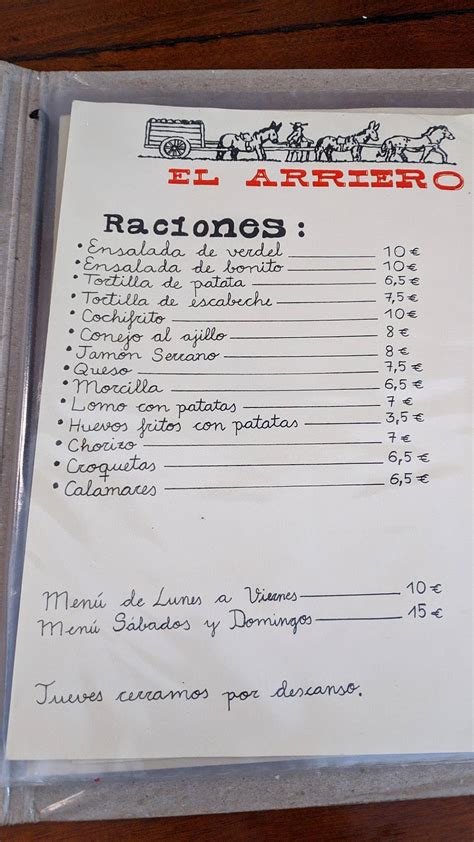 EL ARRIERO
Raciones:
• Ensalada de verdel 10 €
• Ensalada de bonito 10 €
• Tortilla de patata 6,5 €
• Tortilla de escabeche 7,5 €
• Cochifrito 10 €
• Conejo al ajillo 8 €
• Jamón Serrano 8 €
• Queso 7,5 €
• Morcilla 6,5 €
• Lomo con patatas 7 €
• Huevos fritos con patatas 3,5 €
• Chorizo 7 €
• Croquetas 6,5 €
• Calamares 6,5 €
Menú de Lunes a Viernes 10 €
Menú Sábados y Domingos 15 €
Jueves cerramos por descanso.